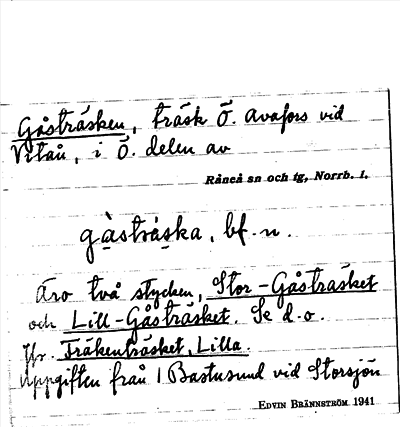 Gåsträsken, träsk Ö. Avafors vid
Vitån, i Ö. delen av
Råneå sn och tg, Norrb. l.
gàsträska, bf. n.
Äro två stycken, Stor-Gåsträsket
och Lill-Gåsträsket. Se d.o.
Jfr. Fräkenträsket, Lilla.
Uppgiften från 1 Bastusund vid Storsjön
EDVIN BRÄNNSTRÖM 1941